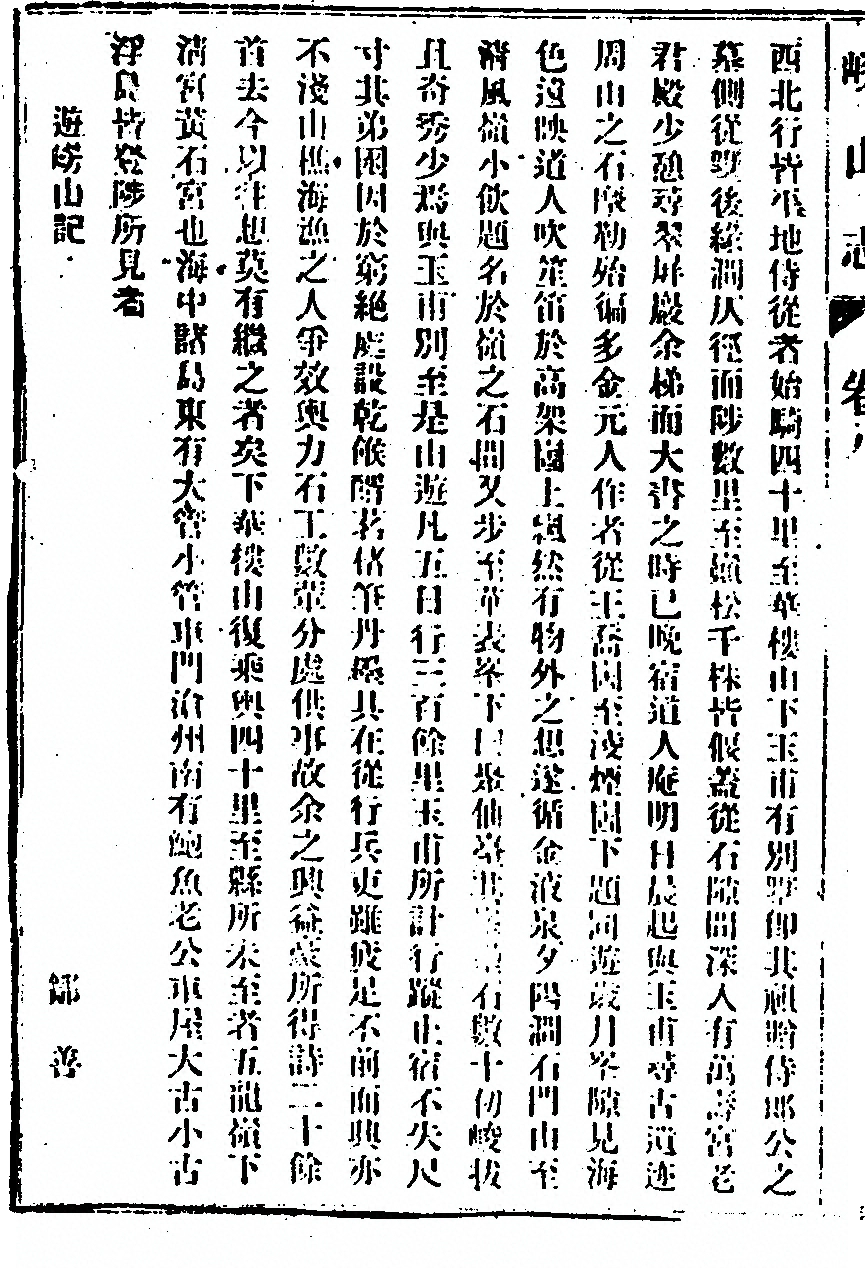 嶗山志 卷八
西北行皆平地侍從者始騎四十里至華樓山下玉甫有別墅卽其祖贈侍郎公之
墓側從墅後緣澗仄徑而陟數里至嶺松千株皆偃蓋從石隙間深入有萬壽宮老
君殿少憩尋翠屏巖余梯而大書之時已晚宿道人庵明日晨起與玉甫尋古道迤
周山之石摩勒殆徧多金元人作者從王喬崮至凌煙崮下題同遊歲月峯隙見海
色遠映道人吹笙笛於高架崮上飄然有物外之想遂循金液泉夕陽澗石門山至
清風嶺小飲題名於嶺之石間又步至華表峯下曰聚仙臺其石數十仞峻拔
且奇秀少焉與玉甫別至是山遊凡五日行三百餘里玉甫所計行蹤止宿不失尺
寸其弟囦因於窮絕處設乾餱醑茗偫筆丹繩具在從行兵吏雖疲足不前而興亦
不淺山樵海漁之人爭效輿力石工數輩分處供事故余之興益豪所得詩二十餘
首去今以往想莫有繼之者矣下華樓山復乘輿四十里至縣所未至者五龍嶺下
清宮黃石宮也海中諸島東有大管小管車門滄州南有鮑魚老公車屋大古小古
浮島皆登陟所見者
遊嶗山記 鄒善